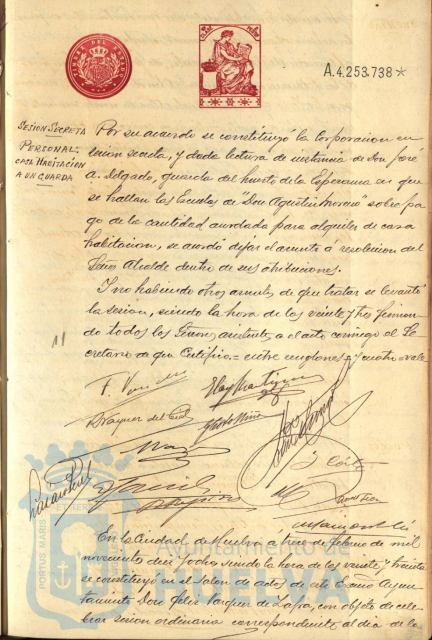 A.4.253.738*
SESIÓN SECRETA
PERSONAL.
CASA HABITACION
A UN GUARDA
Por su acuerdo se constituyó la Corporacion en
sesion secreta, y dada lectura de instancia de Don José
A. Delgado, guarda del huerto de la Esperanza en que
se hallan las Escuelas de "Don Agustin Moreno" sobre pa-
go de la cantidad acordada para alquiler de casa
habitacion, se acordó dejar el asunto á resolucion del
Señor Alcalde dentro de sus atribuciones.
Y no habiendo otros asuntos de que tratar se levantó
la sesion, siendo la hora de las veinte y tres firman-
do todos los Señores asistentes a el acto conmigo el Se-
cretario de que Certifico = entre renglones = y cuatro = vale
En la Ciudad de Huelva a trece de Febrero de mil
novecientos diez y ocho siendo la hora de las veinte y treinta
se constituyó en el Salon de actos de este Excmo Ayun-
tamiento Don Felix Vazquez de Zafra, con objeto de cele-
brar sesion ordinaria correspondiente al dia de la
Ayuntamiento de
HUELVA
PORTUS MARIS